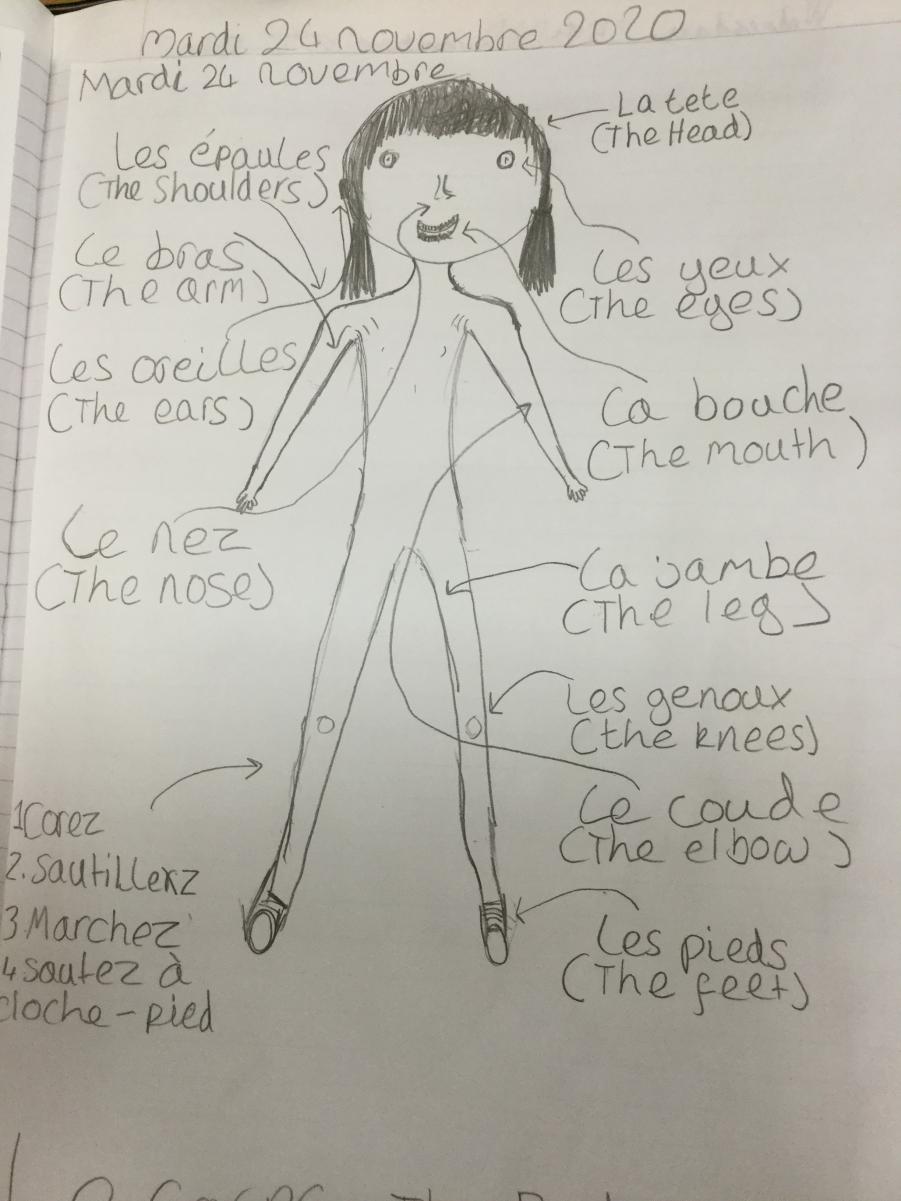 Mardi 24 novembre 2020
Mardi 24 novembre
La tete
(The Head)
Les épaules
(The Shoulders)
Le bras
(The arm)
Les yeux
(The eyes)
Les oreilles
(The ears)
La bouche
(The mouth)
Le nez
(The nose)
La jambe
(The leg)
Les genoux
(the knees)
Le coude
(The elbow)
Les pieds
(The feet)
1Corez
2. Sautillerz
3 Marchez
4 Sautez à
cloche-pied